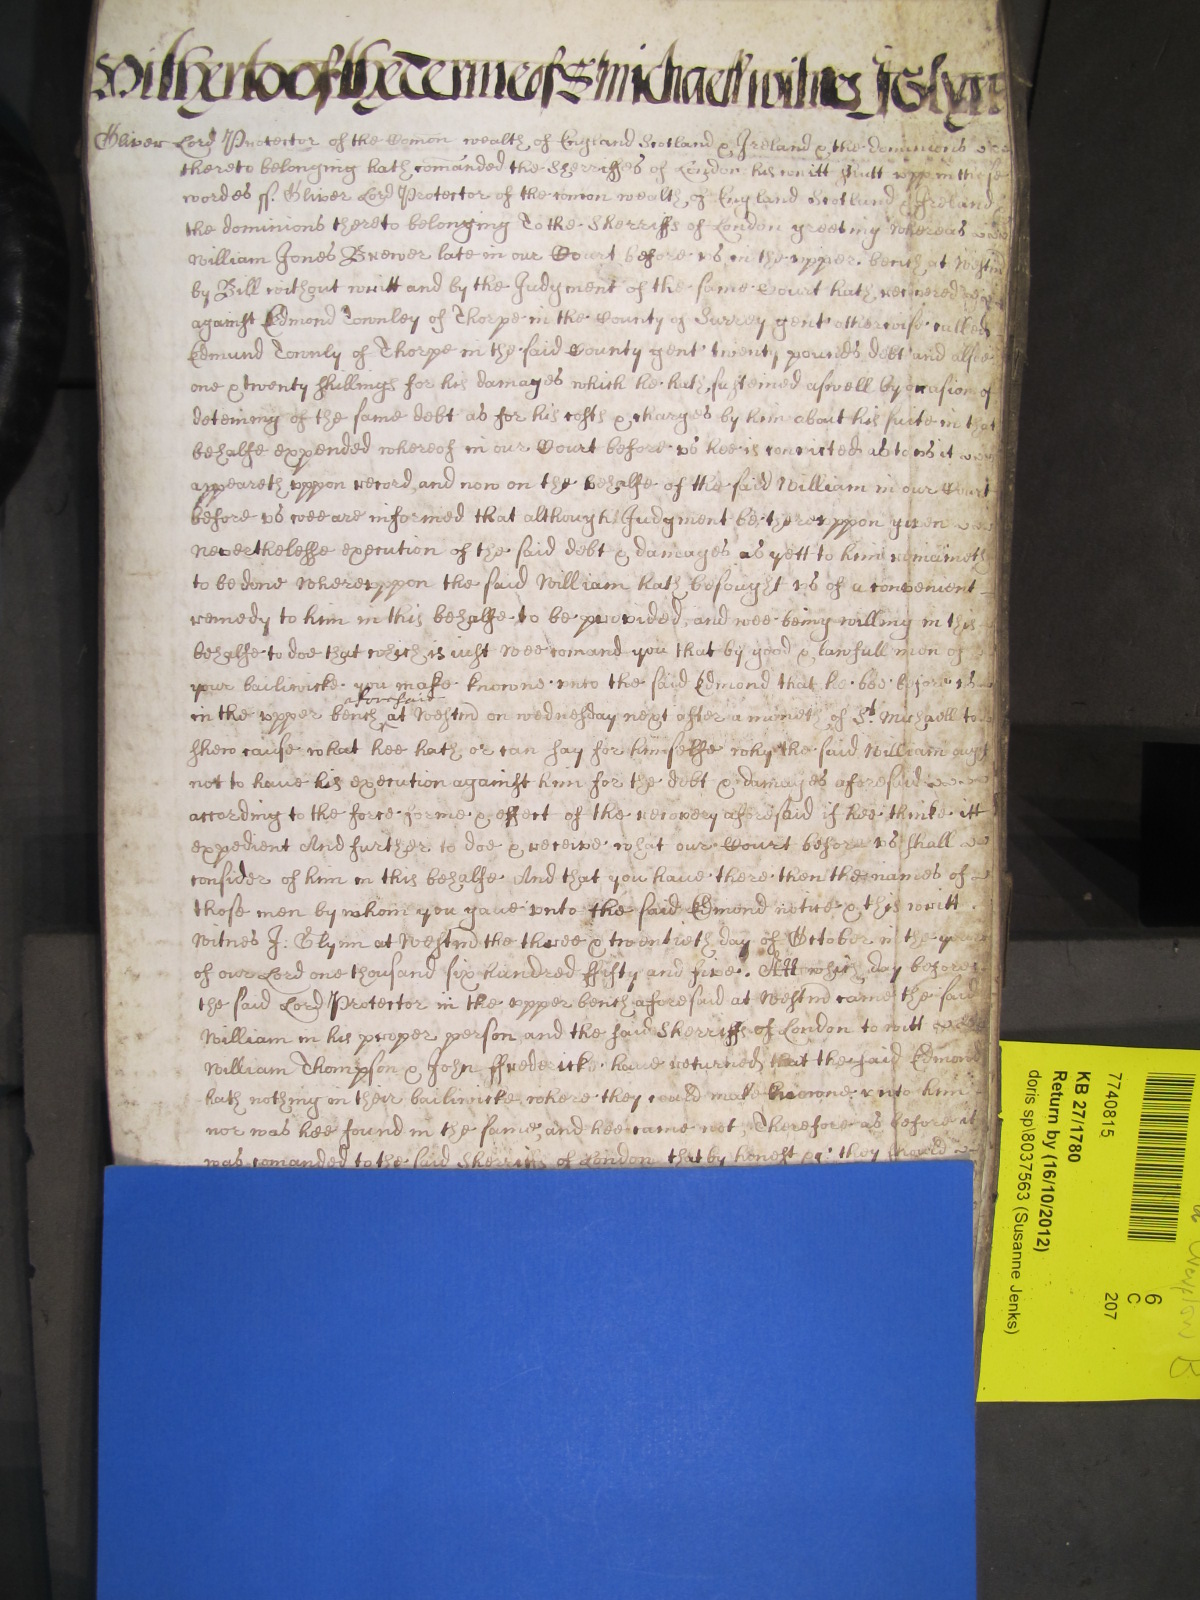 Witherto of the Terme of St Michaell witnes J Glynn
Oliver Lord Protector of the Comon wealth of England Scotland & Ireland & the dominions
thereto belonging hath comanded the Sherriffes of London his writt shutt upp in these
wordes ss. Oliver Lord Protector of the comon wealth of England Scotland & Ireland &
the dominions thereto belonging To the Sherriffs of London greeting Whereas
William Jones Brewer late in our Court before us in the upper bench at Westm
by Bill without writt and by the Judgment of the same Court hath recovered
against Edmond Townley of Thorpe in the County of Surrey gent otherwise called
Edmund Townly of Thorpe in the said County gent twenty pounds debt and alsoe
one & twenty shillings for his damages which he hath susteined aswell by occasion of
deteining of the same debt as for his costs & charges by him about his suite in that
behalfe expended whereof in our Court before us hee is convicted as to us it
appeareth uppon record, and now on the behalfe of the said William in our Court
before us wee are informed that although Judgment be thereuppon given
Neverthelesse execution of the said debt & damages as yett to him remaineth
to be done Whereuppon the said William hath besought us of a convenient
remedy to him in this behalfe to be provided, and wee being willing in this
behalfe to doe that which is iust Wee comand you that by good & lawfull men of
your bailiwicke you make knowne unto the said Edmond that he bee before us
aforesaid
in the upper bench at Westm on wednesday next after a moneth of St. Michaell to
shew cause what hee hath or can say for himselfe why the said William ought
not to have his execution against him for the debt & damages aforesaid
according to the force forme & effect of the recovery aforesaid if hee thinke itt
expedient And further to doe & receive what our Court before us shall
consider of him in this behalfe And that you have there then the names of
those men by whom you gave unto the said Edmond notice & this writt.
Witnes J: Glynn at Westm the three & twentieth day of October in the yeare
of our Lord one thousand six hundred ffifty and five. Att which day before
the said Lord Protector in the upper bench aforesaid at Westm came the said
William in his proper person and the said Sherriffs of London to witt
William Thompson & John ffredericke have returned that the said Edmond
hath nothing in their bailiwicke where they could make knowne unto him
nor was hee found in the same, and hee came not, Therefore as before it
was comanded to the said Sherriffs of London that by honest &c: they should
7740815
KB 27/1780
Return by (16/10/2012)
doris sp\8037563 (Susanne Jenks)
6
C
207